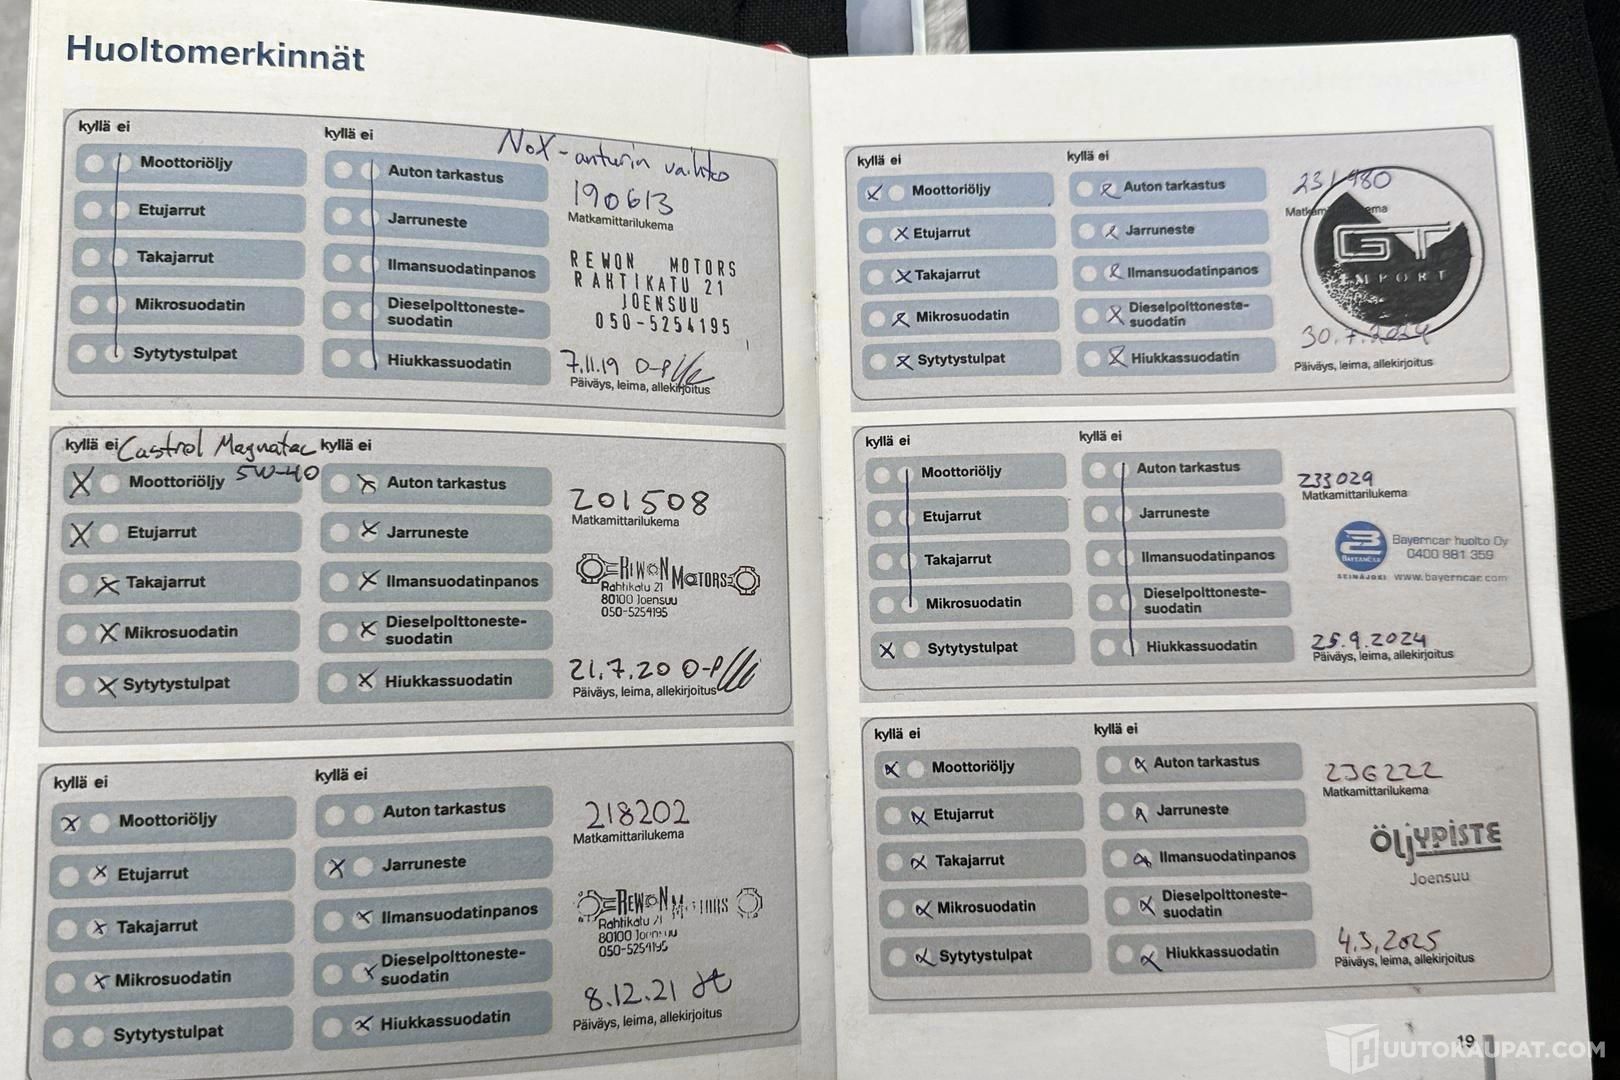 Huoltomerkinnät
kyllä ei
kyllä ei
NoX-anturin vaihto
Moottoriöljy
Etujarrut
Takajarrut
Mikrosuodatin
Sytytystulpat
Auton tarkastus
Jarruneste
Ilmansuodatinpanos
Dieselpolttoneste-
suodatin
Hiukkassuodatin
190613
Matkamittarilukema
REWON MOTORS
RAHTIKATU 21
JOENSUU
050-5254195
7.11.19 O-P
Päiväys, leima, allekirjoitus
kyllä ei
Castrol Magnatec
5W-40
kyllä ei
X Moottoriöljy
X Etujarrut
X Takajarrut
X Mikrosuodatin
X Sytytystulpat
X Auton tarkastus
X Jarruneste
X Ilmansuodatinpanos
X Dieselpolttoneste-
suodatin
X Hiukkassuodatin
201508
Matkamittarilukema
REWON MOTORS
Rahtikatu 21
80100 Joensuu
050-5254195
21.7.20 O-P
Päiväys, leima, allekirjoitus
kyllä ei
kyllä ei
X Moottoriöljy
X Etujarrut
X Takajarrut
X Mikrosuodatin
Sytytystulpat
Auton tarkastus
X Jarruneste
X Ilmansuodatinpanos
X Dieselpolttoneste-
suodatin
X Hiukkassuodatin
218202
Matkamittarilukema
REWON MOTORS
Rahtikatu 21
80100 Joensuu
050-5254195
8.12.21
Päiväys, leima, allekirjoitus
kyllä ei
kyllä ei
X Moottoriöljy
X Etujarrut
X Takajarrut
X Mikrosuodatin
X Sytytystulpat
X Auton tarkastus
X Jarruneste
X Ilmansuodatinpanos
X Dieselpolttoneste-
suodatin
X Hiukkassuodatin
231980
GT
IMPORT
30.7.2024
Päiväys, leima, allekirjoitus
kyllä ei
kyllä ei
Moottoriöljy
Etujarrut
Takajarrut
Mikrosuodatin
X Sytytystulpat
Auton tarkastus
Jarruneste
Ilmansuodatinpanos
Dieselpolttoneste-
suodatin
Hiukkassuodatin
233029
Matkamittarilukema
BAYERNCAR
SEINÄJOKI
Bayerncar huolto Oy
0400 881 359
www.bayerncar.com
25.9.2024
Päiväys, leima, allekirjoitus
kyllä ei
kyllä ei
X Moottoriöljy
X Etujarrut
X Takajarrut
X Mikrosuodatin
X Sytytystulpat
X Auton tarkastus
X Jarruneste
X Ilmansuodatinpanos
X Dieselpolttoneste-
suodatin
X Hiukkassuodatin
236222
Matkamittarilukema
ÖLJYPISTE
Joensuu
4.3.2025
Päiväys, leima, allekirjoitus
19
HUUTOKAUPAT.COM